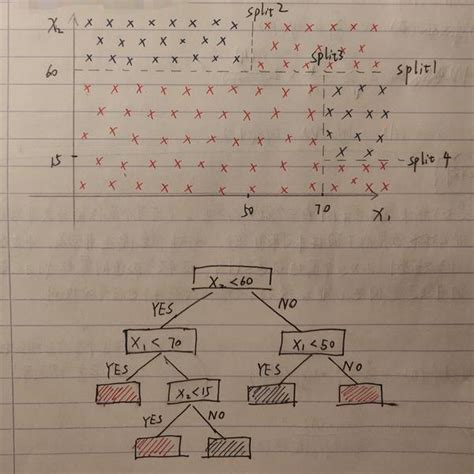 X₂
split2
split3
60
split1
15
split 4
50
70
X₁
X₂<60
YES
NO
X₁<70
X₁<50
YES
YES
NO
X₂<15
YES
NO